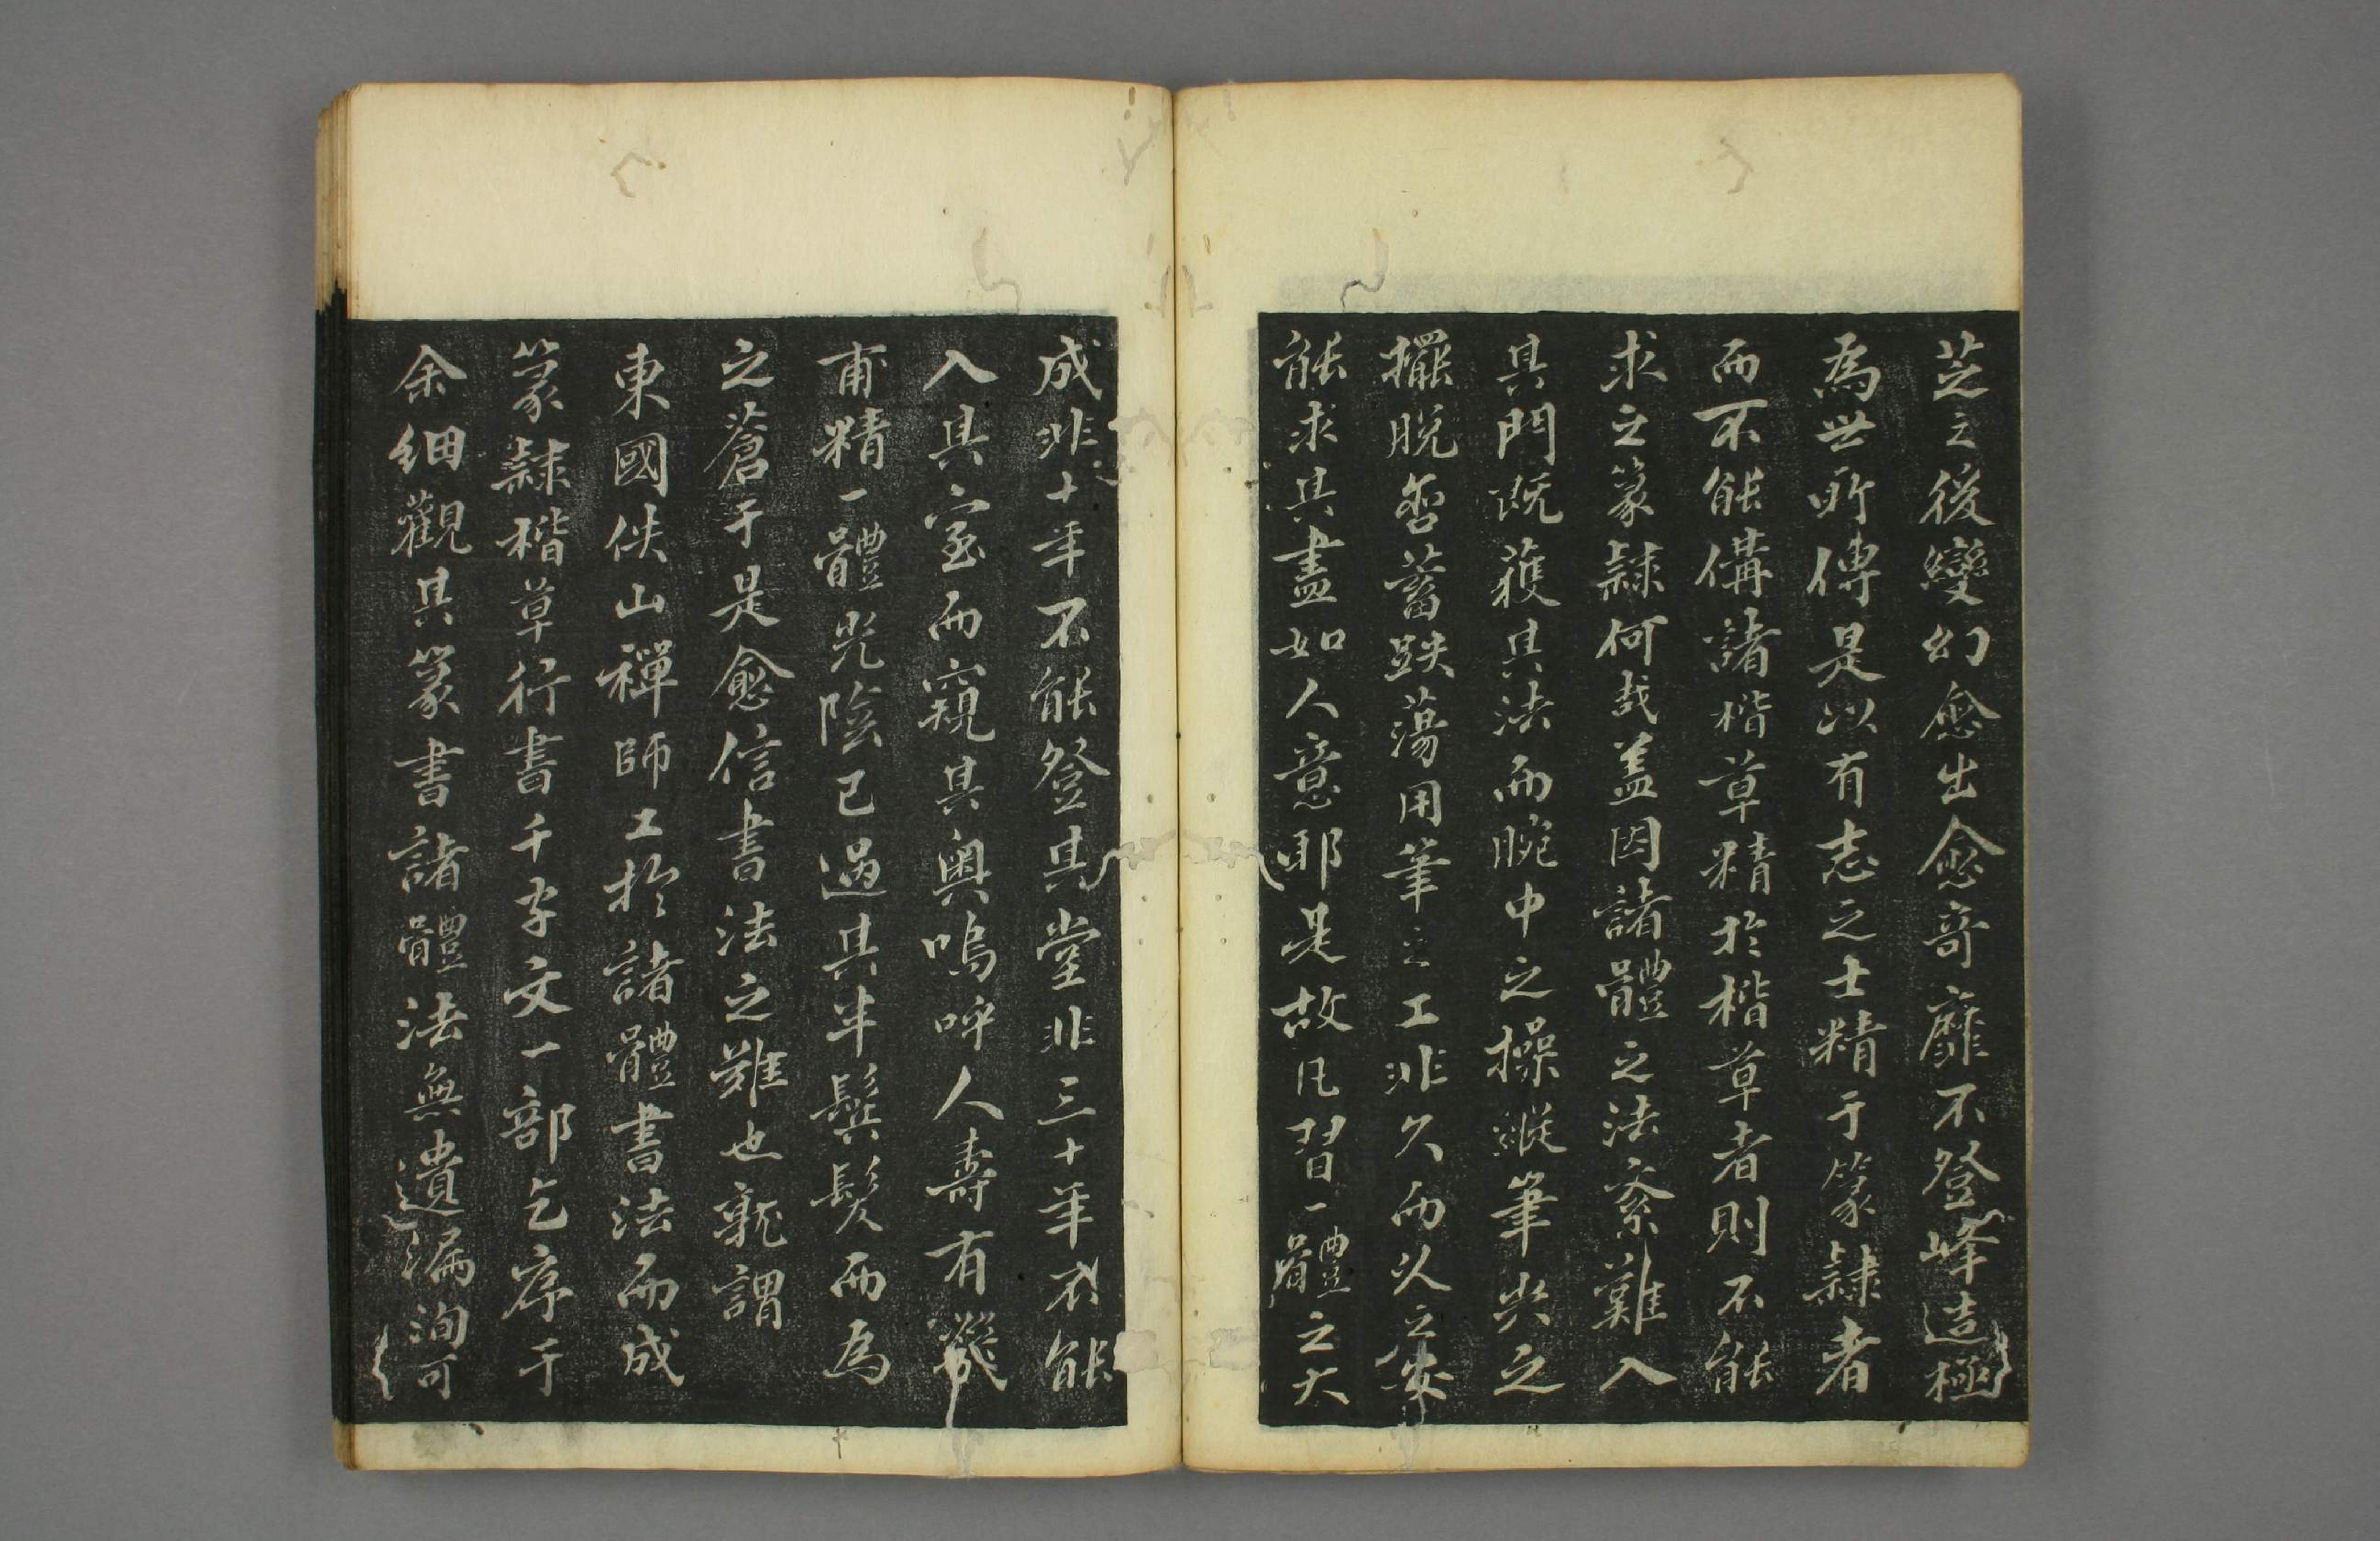 芝之後變幻愈出愈奇靡不登峰造極
為世所傳是以有志之士精于篆隷者
而不能備諸楷草精於楷草者則不能
求之篆隷何哉盖因諸體之法紊難入
其門既獲其法而腕中之操縱筆
擺脫蓄跌蕩用筆之工非久而以之
能求其盡如人意耶是故凡習一體之大
成非十年不能登其堂非三十年不能
入其室而窺其奧嗚呼人壽有幾
甫精一體光陰已過其半鬂髮而為
之蒼于是愈信書法之難也孰謂
東國佚山禪師工於諸體書法而成
篆隷楷草行書千字文一部乞序于
余細觀其篆書諸體法無遺漏洵可